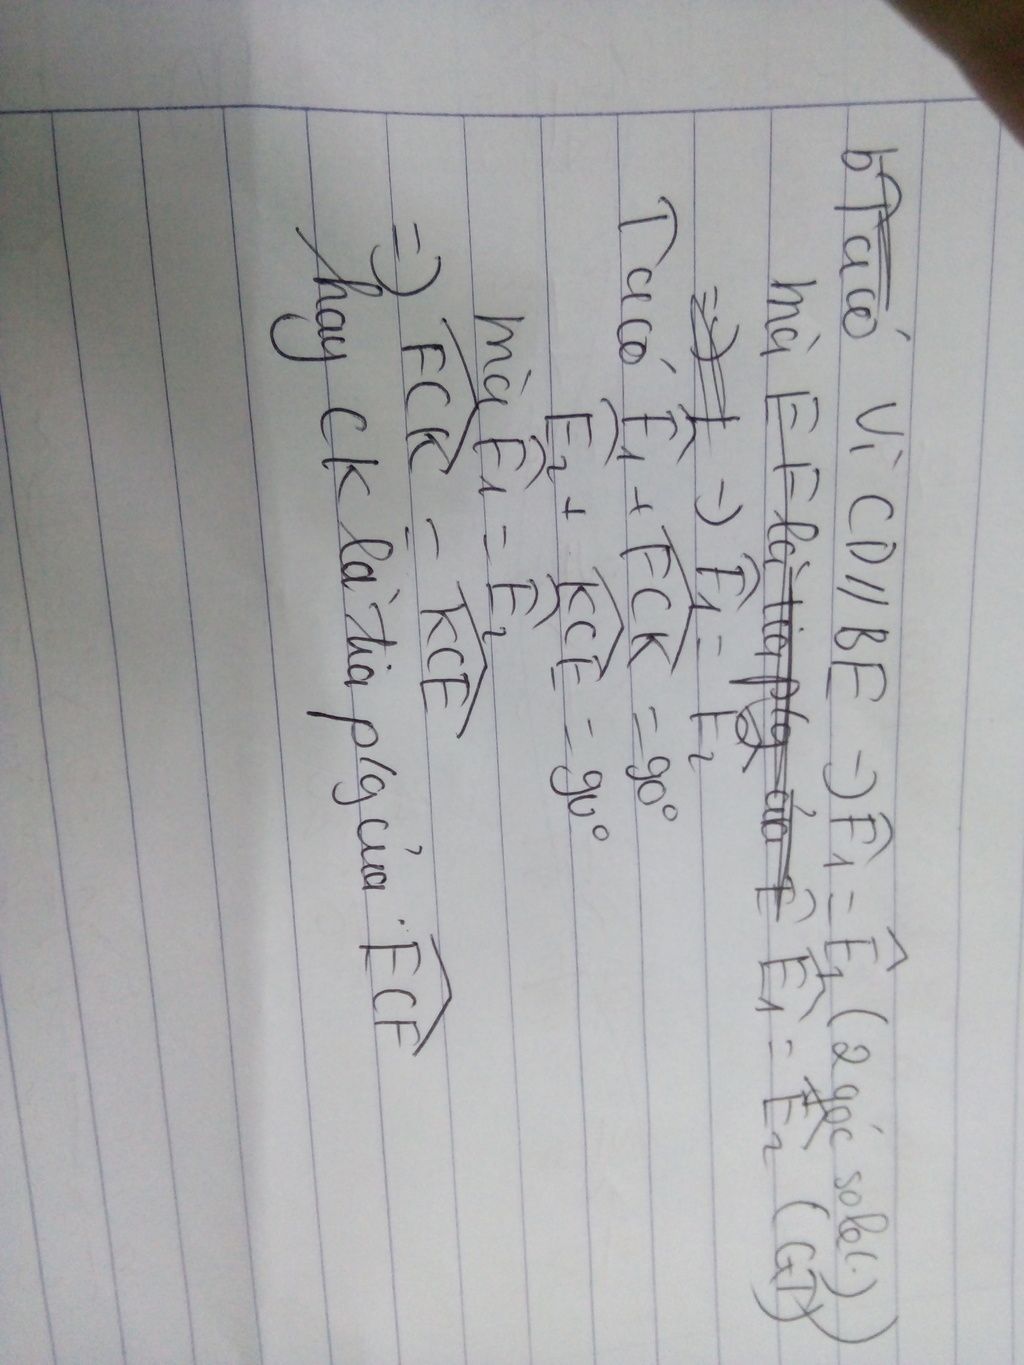 b Ta có Vì CD // BE → F̂₁ = Ê₁ (2 góc sole (.))
mà EF là tia p/g của Ê Ê₁ = Ê₂ (GT)
=) F → F̂₁ = Ê₂
Ta có F̂₁ + FCK = 90°
Ê₂ + KCE = 90°
mà F̂₁ = Ê₂
=) FCK = KCE
hay CK là tia p/g của ECF